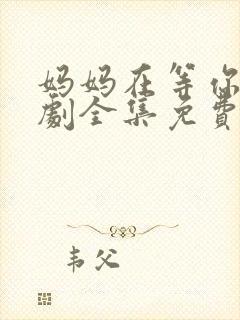 妈妈在等你
劇全集免費
韦父